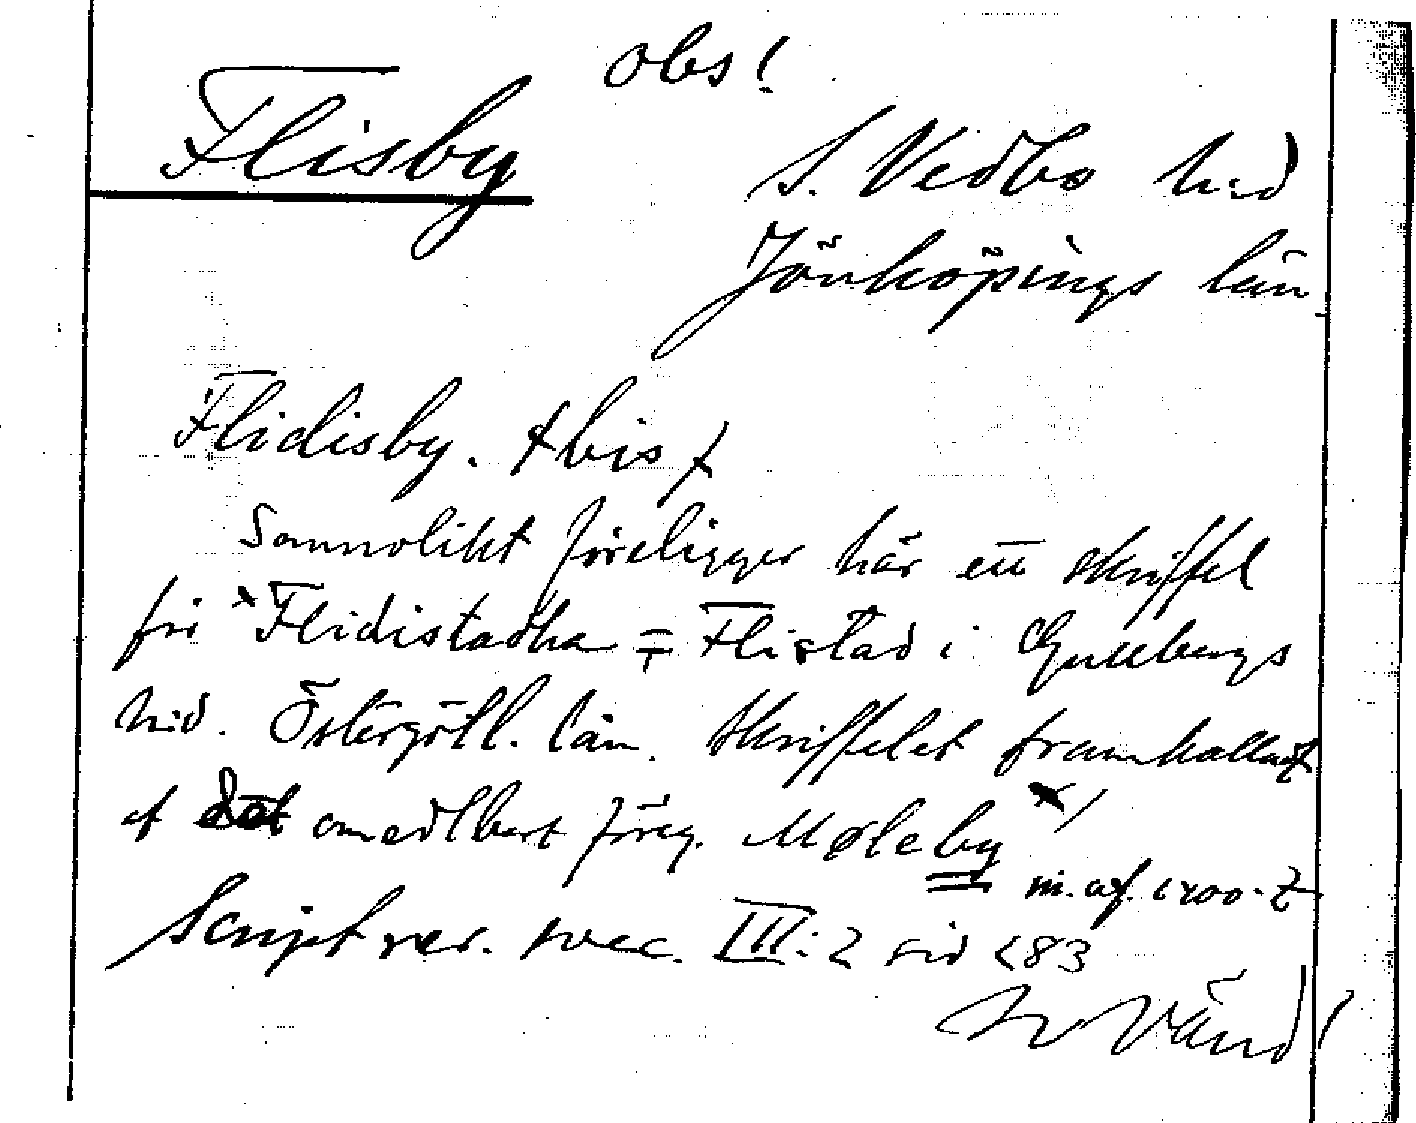 Obs!
Flisby
S. Vedbo hd
Jönköpings län
Flidisby. (bis)
Sannolikt föreligger här ett skriffel
för *Flidistadha = Flistad i Gullbergs
hd. Östergötl. län. Skriffelet framkallat
af det omedlbart föreg. Møleby x)
m. af. 1200-t
Script rer. svec. III:2 sid 183
Vänd!